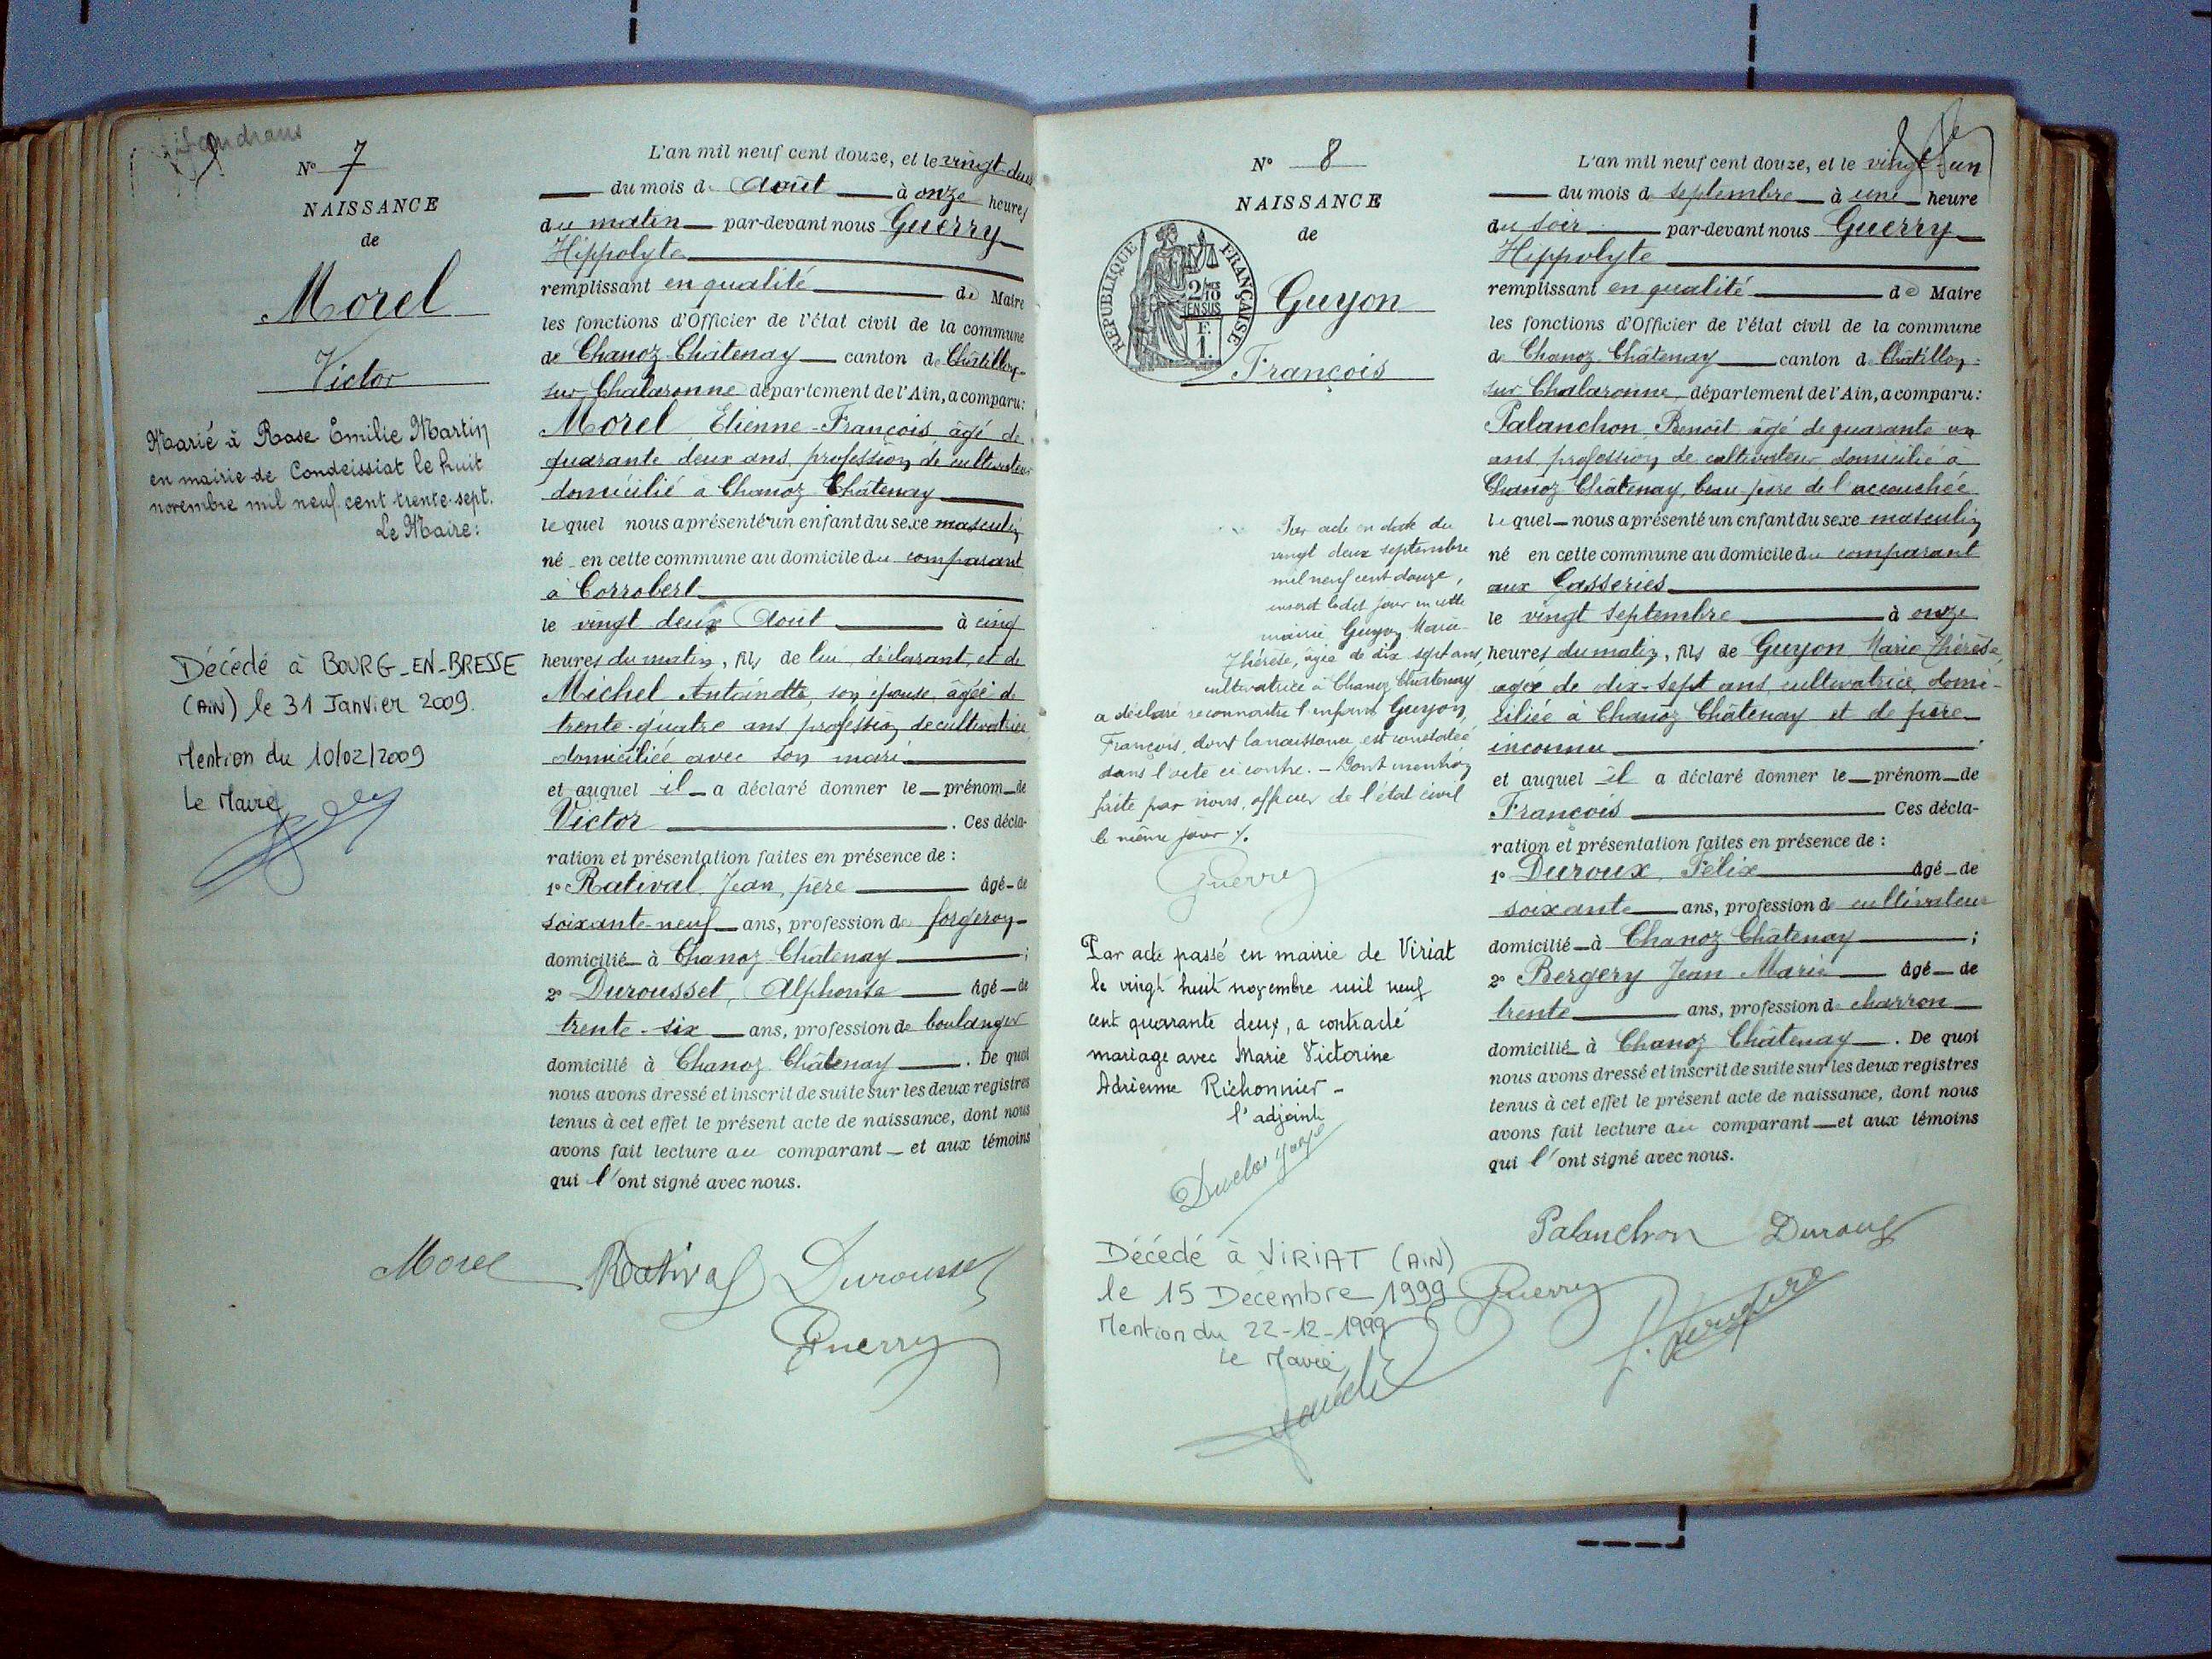 Nº 7
NAISSANCE
de
Morel
Victor
Marié à Rose Emilie Martin
en mairie de Condeissiat le huit
novembre mil neuf cent trente-sept.
Le Maire:
Décédé à BOURG-EN-BRESSE
(AIN) le 31 Janvier 2009.
Mention du 10/02/2009
Le Maire
L'an mil neuf cent douze, et le vingt-deux
du mois d Août à onze heures
du matin par-devant nous Guerry
Hippolyte
remplissant en qualité de Maire
les fonctions d'Officier de l'état civil de la commune
de Chanoz-Châtenay canton de Châtillon-
sur-Chalaronne département de l'Ain, a comparu:
Morel Etienne-François âgé de
quarante deux ans, profession de cultivateur
domicilié à Chanoz Châtenay
lequel nous a présenté un enfant du sexe masculin
né en cette commune au domicile du comparant
à Corrobert
le vingt deux Août à cinq
heures du matin, fils de lui déclarant, et de
Michel Antoinette, son épouse, âgée de
trente-quatre ans profession de cultivatrice
domiciliée avec son mari
et auquel il a déclaré donner le prénom de
Victor . Ces décla-
ration et présentation faites en présence de :
1º Ratival Jean, père âgé de
soixante-neuf ans, profession de forgeron
domicilié à Chanoz Châtenay ;
2º Durousset, Alphonse âgé de
trente-six ans, profession de boulanger
domicilié à Chanoz Châtenay . De quoi
nous avons dressé et inscrit de suite sur les deux registres
tenus à cet effet le présent acte de naissance, dont nous
avons fait lecture au comparant et aux témoins
qui l'ont signé avec nous.
Morel Ratival Durousset
Guerry
Nº 8
NAISSANCE
de
RÉPUBLIQUE FRANÇAISE
2/10
EN SUS
F.
1.
Guyon
François
Par acte en date du
vingt deux septembre
mil neuf cent douze,
inscrit ledit jour en cette
mairie Guyon Marie
Thérèse, âgée de dix sept ans,
cultivatrice à Chanoz Châtenay
a déclaré reconnaître l'enfant Guyon,
François, dont la naissance est constatée
dans l'acte ci contre. - Dont mention
faite par nous, officier de l'état civil
le même jour %.
Guerry
Par acte passé en mairie de Viriat
le vingt huit novembre mil neuf
cent quarante deux, a contracté
mariage avec Marie Victorine
Adrienne Richonnier -
l'adjoint
Duclos
Décédé à VIRIAT (AIN)
le 15 Décembre 1999
Mention du 22-12-1999
Le Maire
L'an mil neuf cent douze, et le vingt-un
du mois d septembre à une heure
du soir par-devant nous Guerry
Hippolyte
remplissant en qualité de Maire
les fonctions d'Officier de l'état civil de la commune
d Chanoz-Châtenay canton d Châtillon-
sur Chalaronne, département de l'Ain, a comparu:
Palanchon Benoît âgé de quarante un
ans, profession de cultivateur domicilié à
Chanoz Châtenay, beau-père de l'accouchée
lequel nous a présenté un enfant du sexe masculin
né en cette commune au domicile du comparant
aux Gasseries
le vingt septembre à onze
heures du matin, fils de Guyon Marie Thérèse,
agée de dix-sept ans, cultivatrice, domi-
ciliée à Chanoz Châtenay et de père
inconnu
et auquel il a déclaré donner le prénom de
François Ces décla-
ration et présentation faites en présence de :
1º Duroux, Félix âgé de
soixante ans, profession d cultivateur
domicilié à Chanoz Châtenay ;
2º Bergery Jean Marie âgé de
trente ans, profession d charron
domicilié à Chanoz Châtenay . De quoi
nous avons dressé et inscrit de suite sur les deux registres
tenus à cet effet le présent acte de naissance, dont nous
avons fait lecture au comparant et aux témoins
qui l'ont signé avec nous.
Palanchon Duroux
Guerry